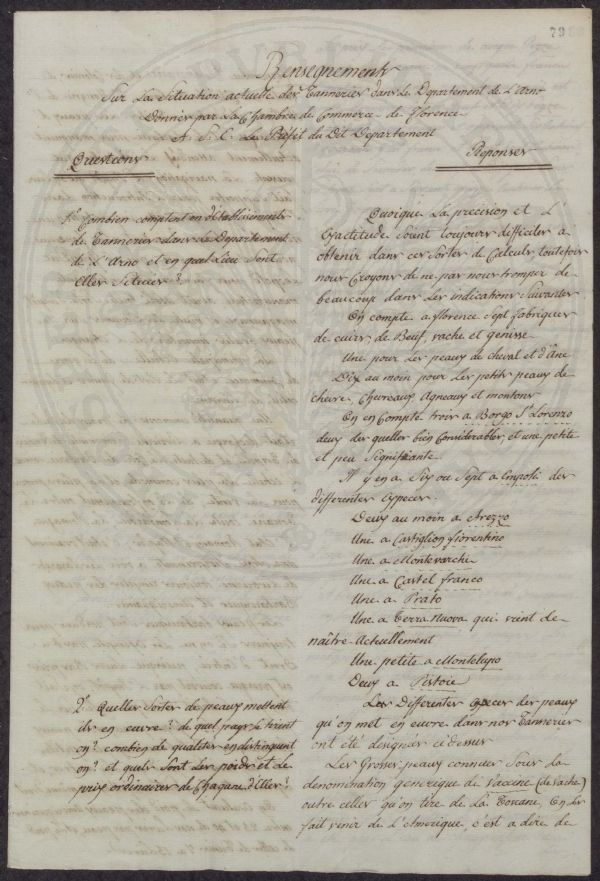 79
Renseignements
Sur La Situation actuelle des Tanneries dans Le Departement de L'Arno
Donnés par La Chambre de Commerce de Florence
A. S. E. Le Préfet du Dit Departement
Questions
1.e Combien comptent on d'établissements
de Tanneries dans Le Departement
de L'Arno et en quel Lieu Sont
Elles Situées?
2.e Quelles Sortes de peaux mettent
ils en euvre? de quel pays Se tirent
on? combien de qualités en distinguent
on? et quels Sont Les poids et Le
prix ordinaires de Chaqune d'Elles?
Réponses
Quoique La precision et L'
Exactitude Soient toujours difficiles a
obtenir dans ces Sortes de Calculs toutefois
nous Croyons de ne pas nous tromper de
beaucoup dans Les indications Suivantes
On compte a florence Sept fabriques
de cuirs de Beuf, vache et genisse
Une pour Les peaux de cheval et d'Âne
Dix au moin pour Les petits peaux de
chevre, Chevreaux Agneaux et moutons
On en Compte trois a Borgo S.t Lorenzo
deux des quelles bien Considerables, et une petite
et peu Signifiante
Il y en a Six ou Sept a Empoli des
differentes Especes.
Deux au moin a Arezzo
Une a Castiglion fiorentino
Une a Montevarchi
Une a Castel franco
Une a Prato
Une a Terra Nuova qui vient de
naître Actuellement
Une petite a Montelupo
Deux a Pistoie
Les Differentes Especes des peaux
qu'on met en euvre dans nos Tanneries
ont été designées cidessus
Les Grosses peaux connues Sous La
denomination generique de Vaccine (de vache)
outre celles qu'on tire de La Toscane, On Les
fait venir de L'Amerique, c'est a dire de